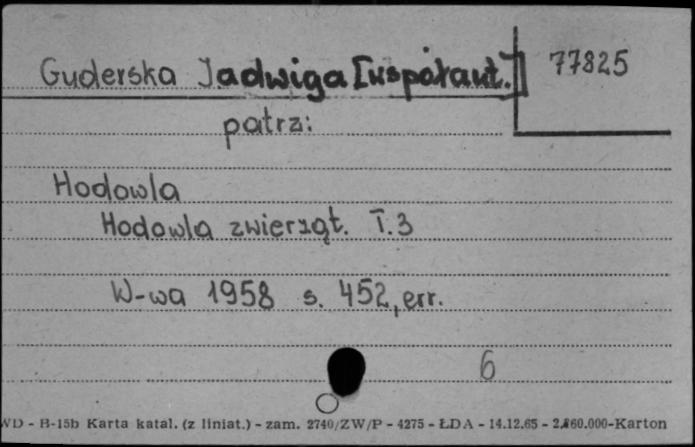 Guderska Jadwiga [współaut.] 77825
patrz:
Hodowla
Hodowla zwierząt. T.3
W-wa 1958 s. 452, err.
6
WD - B-15b Karta katal. (z liniat.) - zam. 2740/ZW/P - 4275 - ŁDA - 14.12.65 - 2.860.000-Karton